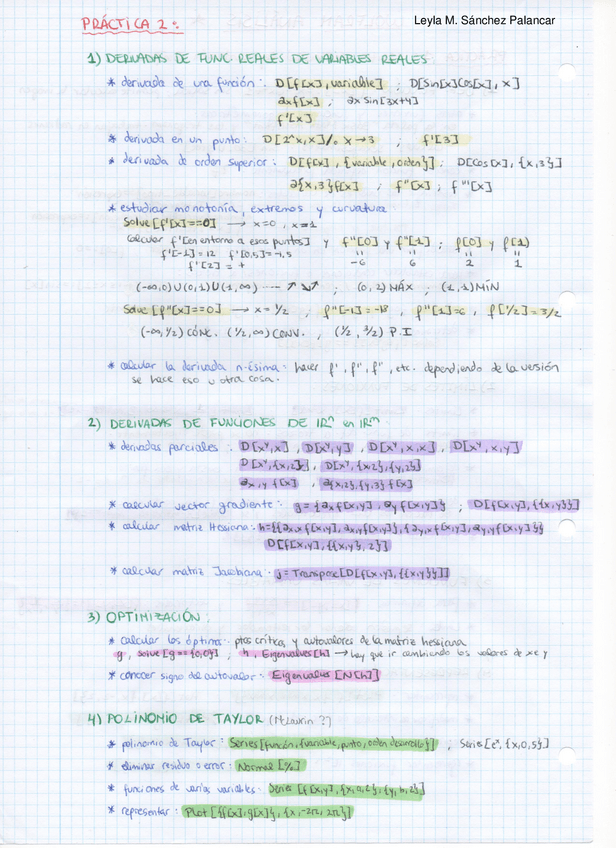 PRÁCTICA 2:
Leyla M. Sánchez Palancar
1) DERIVADAS DE FUNC. REALES DE VARIABLES REALES
* derivada de una función: D[f[x], variable] ; D[Sin[x]Cos[x], x]
∂xf[x] ; ∂x Sin[3x+4]
f'[x]
* derivada en un punto: D[2^x,x]/. x→3 ; f'[3]
* derivada de orden superior: D[f[x], {variable, orden}] ; D[Cos[x], {x,3}]
∂{x,3}f[x] ; f''[x] ; f'''[x]
* estudiar monotonía, extremos y curvatura:
Solve[f'[x]==0] → x=0, x=1
Calcular f'[en entorno a esos puntos] y f''[0] y f''[1] ; f[0] y f[1]
f'[-1]=12 f'[0,5]=-1,5 -6 6 2 1
f'[2]=+
(-∞,0)∪(0,1)∪(1,∞) ---- ↗↘↗ ; (0,2) MÁX ; (1,1) MÍN
Solve[f''[x]==0] → x=1/2, f''[-1]=-18, f''[1]=6, f[1/2]=3/2
(-∞,1/2) CÓNC. (1/2,∞) CONV. , (1/2, 3/2) P.I
* calcular la derivada n-ésima: hacer f', f'', f''', etc. dependiendo de la versión
se hace eso u otra cosa.
2) DERIVADAS DE FUNCIONES DE IRⁿ en IRᵐ
* derivadas parciales: D[xʸ,x] , D[xʸ,y] , D[xʸ,x,x] , D[xʸ,x,y]
D[xʸ,{x,2}] , D[xʸ,{x,2},{y,2}]
∂x,y f[x] , ∂{x,2},{y,3} f[x]
* calcular vector gradiente: g={∂x f[x,y], ∂y f[x,y]} ; D[f[x,y],{{x,y}}]
* calcular matriz Hessiana: h={{∂x,x f[x,y], ∂x,y f[x,y]},{∂y,x f[x,y], ∂y,y f[x,y]}}
D[f[x,y],{{x,y},2}]
* calcular matriz Jacobiana: j=Transpose[D[f[x,y],{{x,y}}]]
3) OPTIMIZACIÓN:
* calcular los óptimos: ptos críticos y autovalores de la matriz hessiana
g, Solve[g=={0,0}] ; h, Eigenvalues[h] → hay que ir cambiando los valores de x e y
* conocer signo del autovalor: Eigenvalues[N[h]]
4) POLINOMIO DE TAYLOR (McLaurin ?)
* polinomio de Taylor: Series[función,{variable,punto,orden desarrollo}] ; Series[eˣ,{x,0,5}]
* eliminar residuo o error: Normal[%]
* funciones de varias variables: Series[f[x,y],{x,a,2},{y,b,2}]
* representar: Plot[{f[x],g[x]},{x,-2π,2π}]